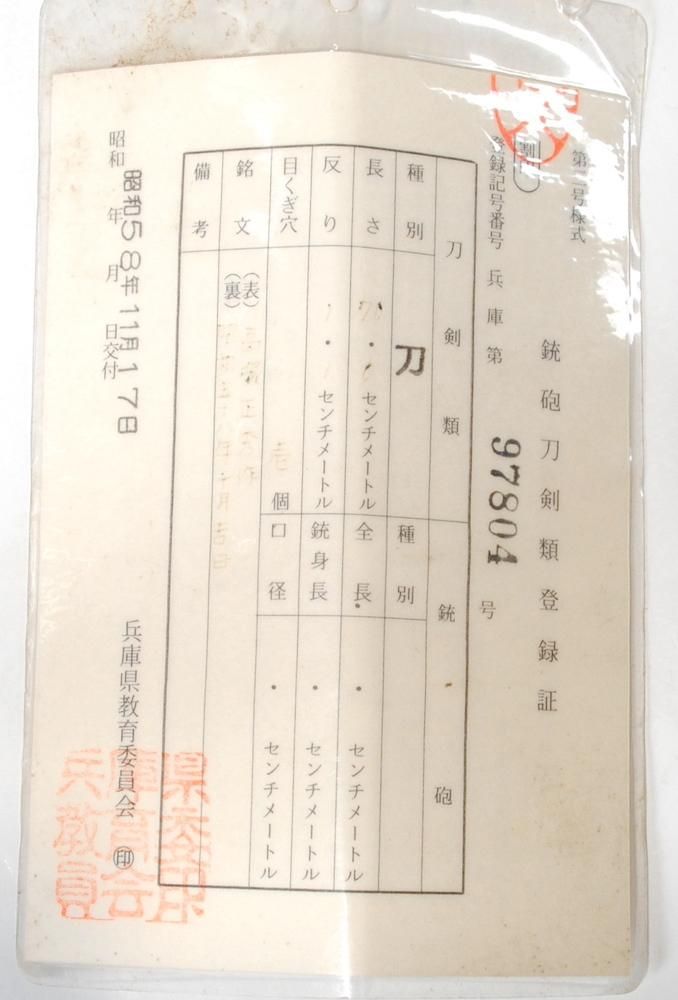 第二号様式
銃砲刀剣類登録証
割印
登録記号番号 兵庫第 97804 号
刀剣類
銃砲
種別 刀
種別
長さ ・ センチメートル
全長 ・ センチメートル
反り ・ センチメートル
銃身長 ・ センチメートル
目くぎ穴 壱 個
口径 ・ センチメートル
銘文 (表)
(裏)
備考
昭和 年 月 日交付
昭和58年11月17日
兵庫県教育委員会 ㊞